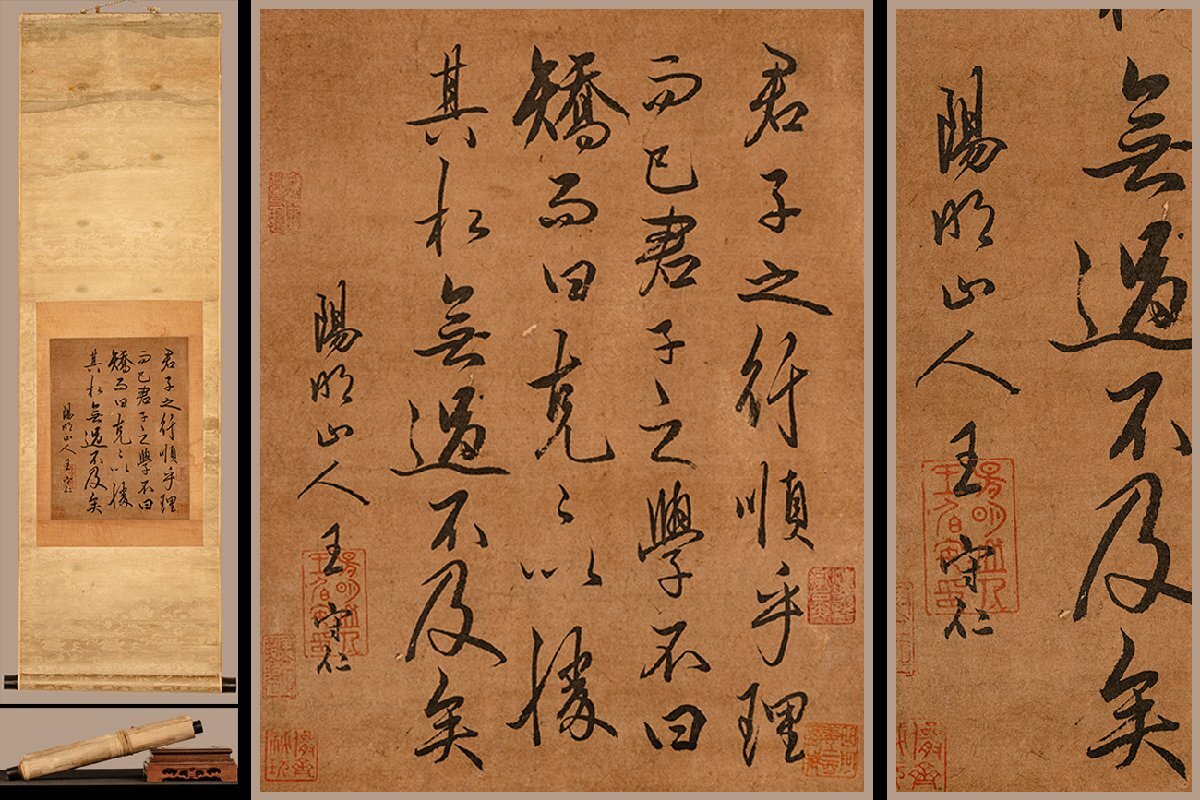 君子之行順乎理
而已君子之學不曰
矯而曰克〻以勝
其私無過不及矣
陽明山人王守仁
君子之行順乎理
而已君子之學不曰
矯而曰克〻以勝
其私無過不及矣
陽明山人王守仁
無過不及矣
陽明山人王守仁